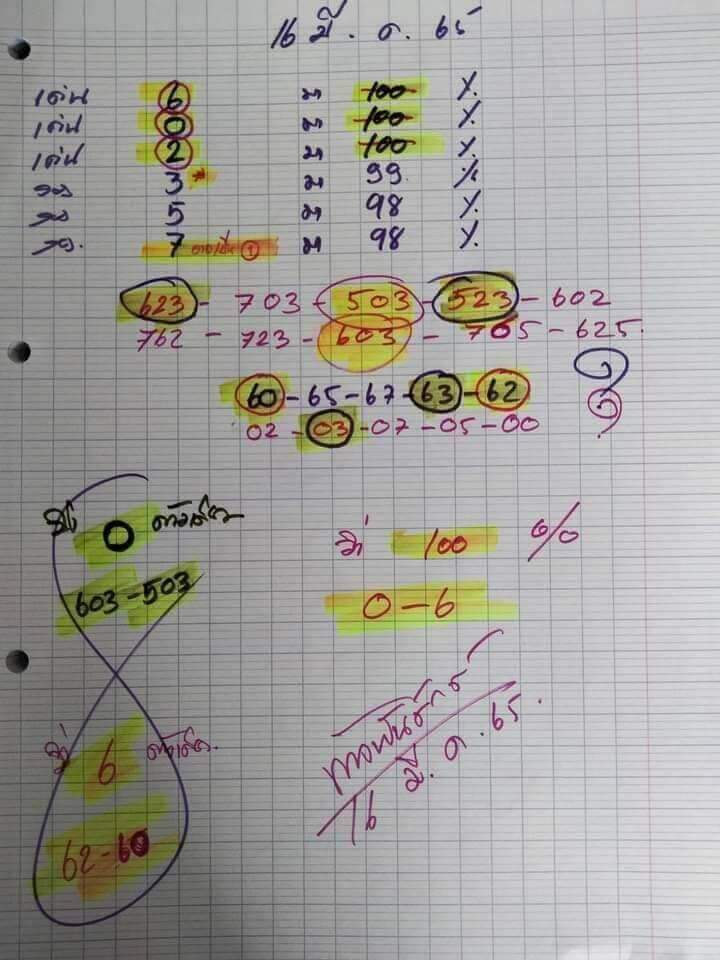 16 มี.ค. 65
เด่น 6 มา 100 %
เด่น 0 มา 100 %
เด่น 2 มา 100 %
รอง 3 * มา 99 %
รอง 5 มา 98 %
รอง 7 ตัวเดียว 1 มา 98 %
623 - 703 - 503 - 523 - 602
762 - 723 - 603 - 705 - 625
60 - 65 - 67 - 63 - 62
02 - 03 - 07 - 05 - 00
0 ตัวเดียว
603 - 503
วิ่ง 100 %
0 - 6
วิ่ง 6 ตัวเดียว
62 - 60
16 มี.ค. 65.